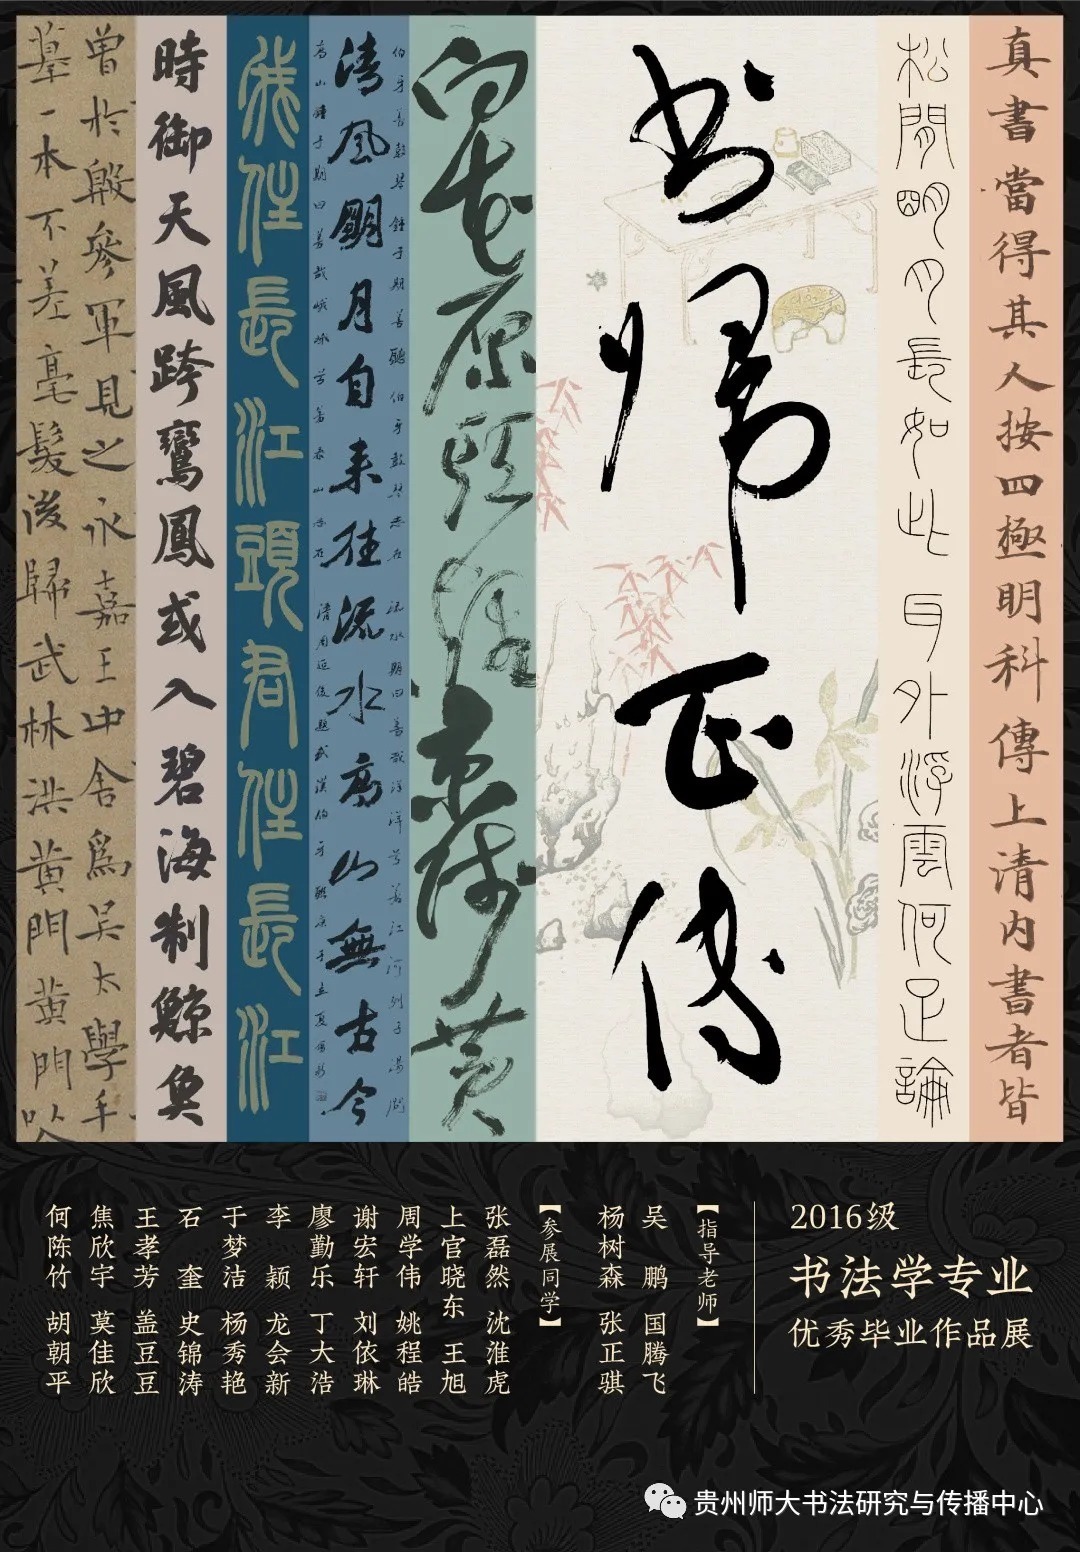 真書當得其人按四極明科傳上清内書者皆
松間明月長如此身外浮雲何足論
书归正传
百花原頭望京師黄
伯牙善鼓琴鍾子期善聽伯牙鼓琴志在流水期曰善哉洋洋兮若江河列子湯問
清風明月自来往流水高山無古今
我住長江頭君住長江
時御天風跨鸞鳳或入碧海制鯨魚
曾於殷參軍見之永嘉王中舍爲吴太學手
摹一本不差毫髮後歸武林洪黄門黄門以
2016级
书法学专业
优秀毕业作品展
【指导老师】
吴鹏 国腾飞
杨树森 张正骐
【参展同学】
张磊然 沈淮虎
上官晓东 王旭
周学伟 姚程皓
谢宏轩 刘依琳
廖勤乐 丁大浩
李颖 龙会新
于梦洁 杨秀艳
石奎 史锦涛
王孝芳 盖豆豆
焦欣宇 莫佳欣
何陈竹 胡朝平
贵州师大书法研究与传播中心